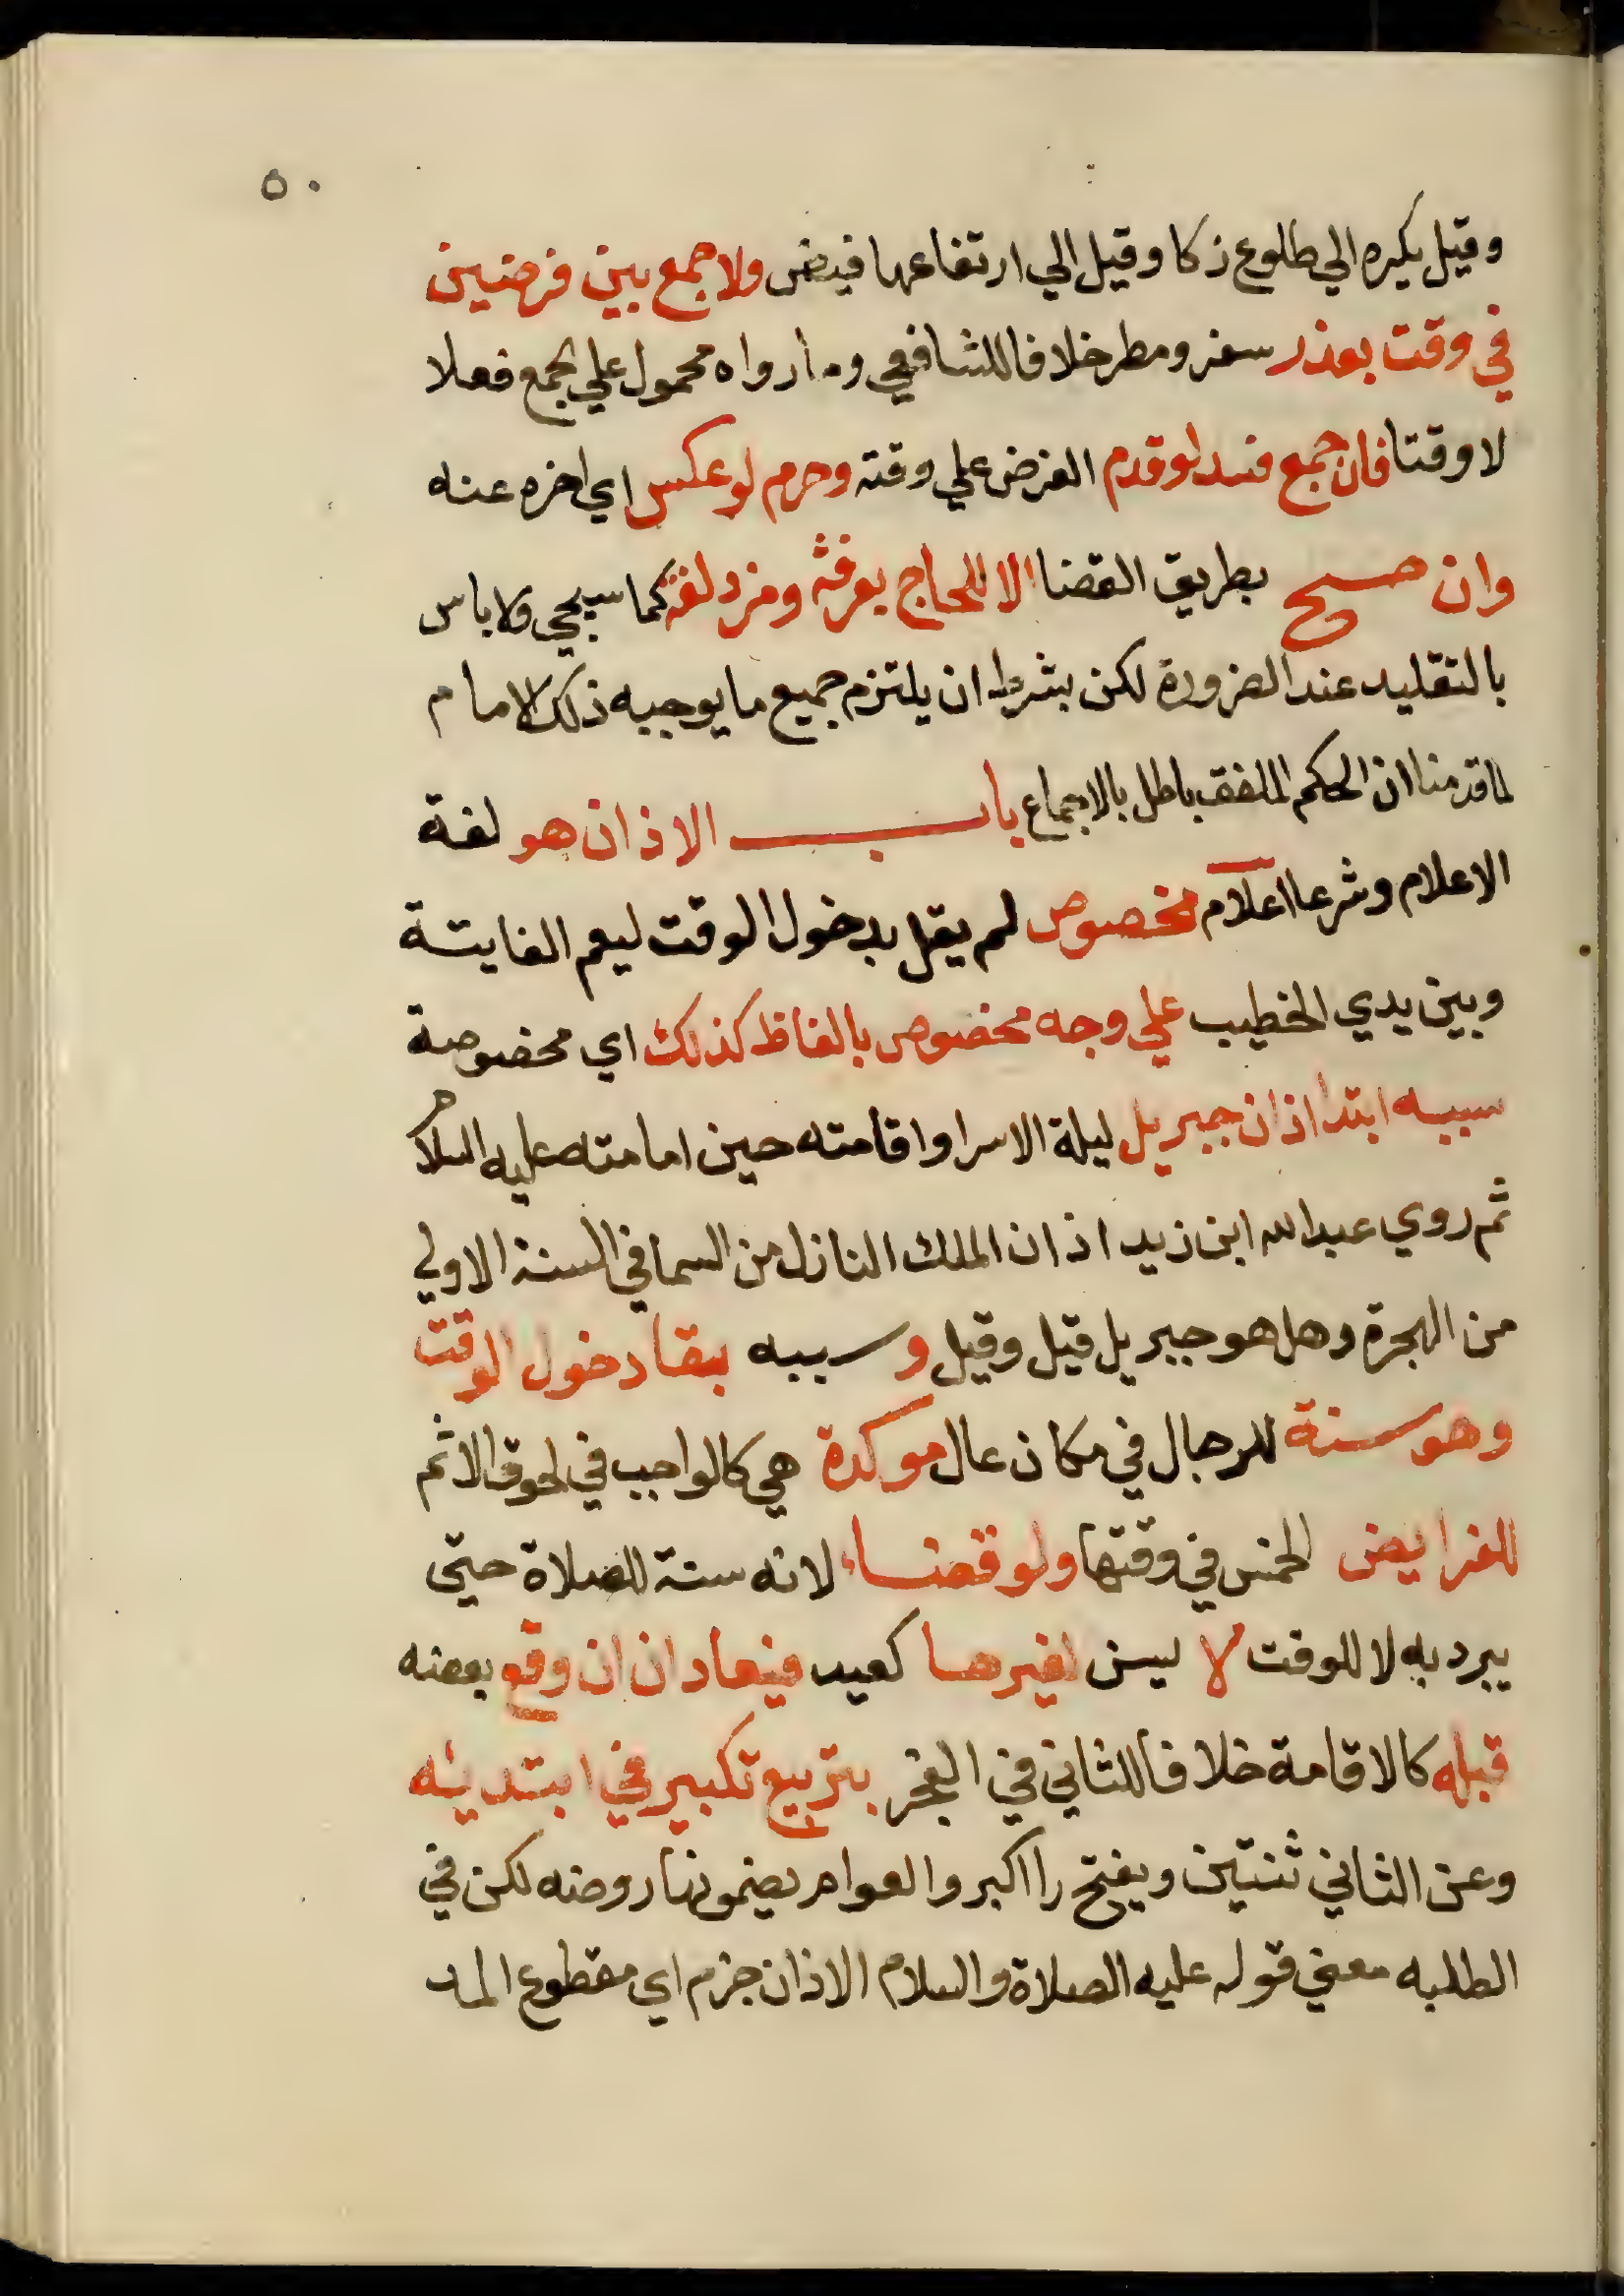 ٥٠
وقيل يكره الي طلوع ذكا وقيل الي ارتفاعها فيض ولا جمع بين فرضين
في وقت بعذر سفر ومطر خلافا للشافعي وما رواه محمول علي الجمع فعلا
لا وقتا فان جمع فسد لو قدم الفرض علي وقته وحرم لو عكس اي اخره عنه
وان صح بطريق القضا الا للحاج بعرفة ومزدلفة كما سيجي ولا باس
بالتقليد عند الضرورة لكن بشرط ان يلتزم جميع ما يوجبه ذلك الامام
لما قدمنا ان الحكم الملفق باطل بالاجماع باب الاذان هو لغة
الاعلام وشرعا اعلام مخصوص لم يقل بدخول الوقت ليعم الفايتة
وبين يدي الخطيب علي وجه مخصوص بالفاظ كذلك اي مخصوصة
سببه ابتدا اذان جبريل ليلة الاسرا واقامته حين امامته عليه السلام
ثم روي عبد الله ابن زيد اذان الملك النازل من السما في السنة الاولي
من الهجرة وهل هو جبريل قيل وقيل وسببه بقا دخول الوقت
وهو سنة للرجال في مكان عال موكدة هي كالواجب في لحوق الاثم
للفرايض الخمس في وقتها ولو قضاء لانه سنة للصلاة حتي
يبرد به لا للوقت لا يسن لغيرها كعيد فيعاد اذان وقع بعضه
قبله كالاقامة خلافا للثاني في الفجر بتربيع تكبير في ابتديئه
وعن الثاني ثنتين ويفتح را اكبر والعوام يضمونها روضه لكن في
الطلبه معني قوله عليه الصلاة والسلام الاذان جزم اي مقطوع المد